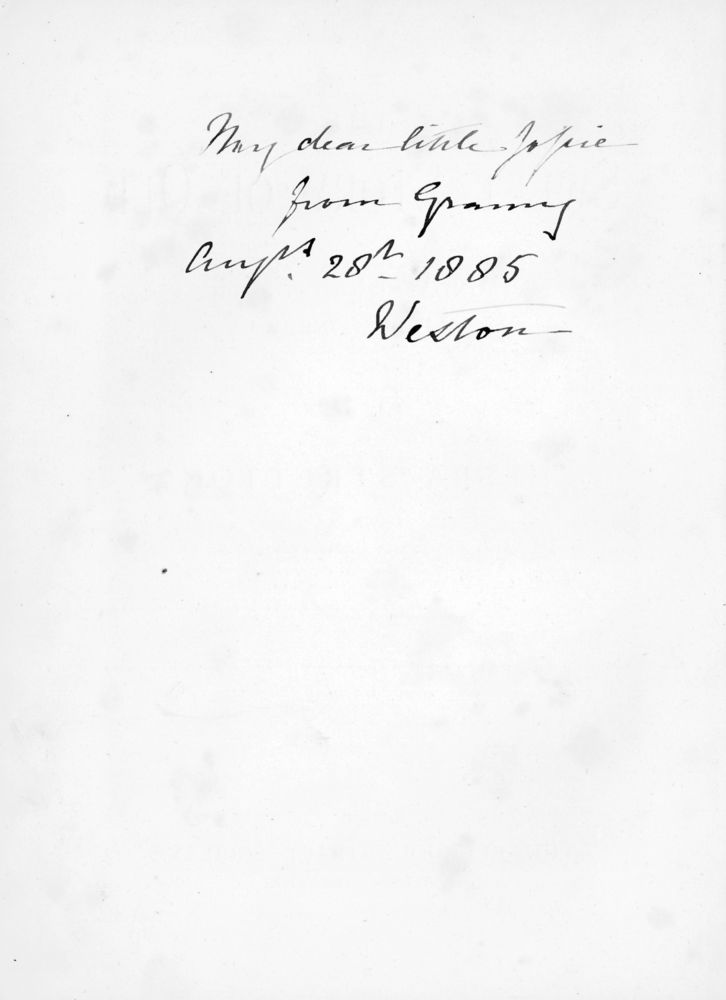 My dear little Josie
from Granny
Augst. 28th 1885
Weston